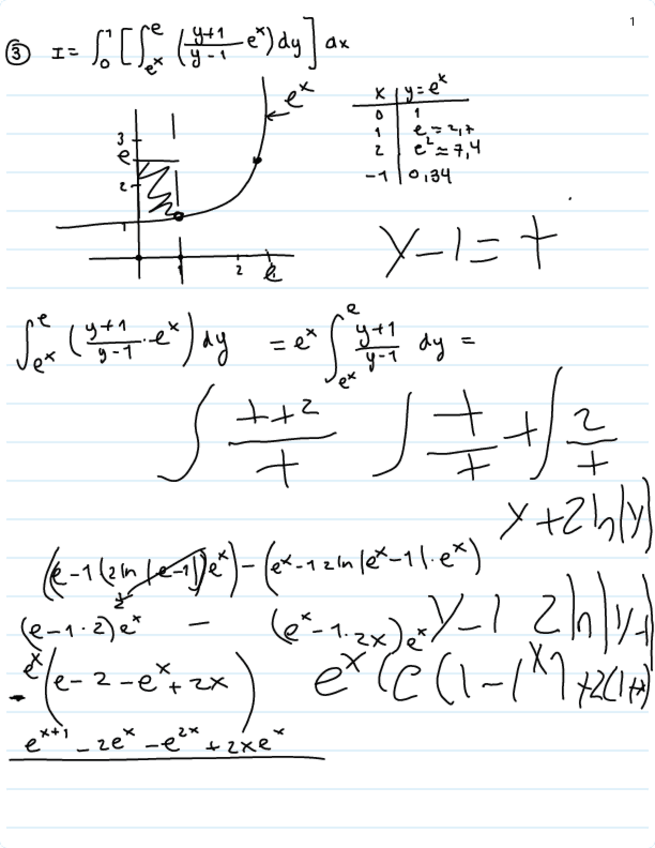 1
③ I = ∫₀¹ [∫_{e^x}^{e} (y+1/y-1 e^x) dy] dx
e^x
x | y = e^x
0 | 1
1 | e = 2,7
2 | e² ≈ 7,4
-1 | 0,34
3
e
2
1
1 2 e
y - 1 = t
∫_{e^x}^{e} (y+1/y-1 · e^x) dy = e^x ∫_{e^x}^{e} y+1/y-1 dy =
∫ t+2/t ∫ t/t + ∫ 2/t
y + 2 ln|y|
(e-1(2 ln|e-1|)e^x) - (e^x-1 2 ln|e^x-1|·e^x)
2
(e-1·2)e^x - (e^x-1·2x)e^x
y-1 2 ln|y-1
e^x(e-2-e^x+2x)
e^x(e(1-1^x)+2(1+x)
e^{x+1} - 2e^x - e^{2x} + 2xe^x